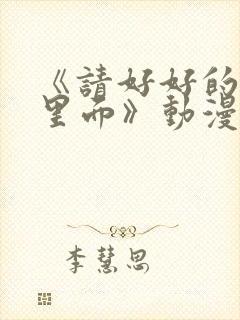 《請好好的
里面》動漫
李慧思